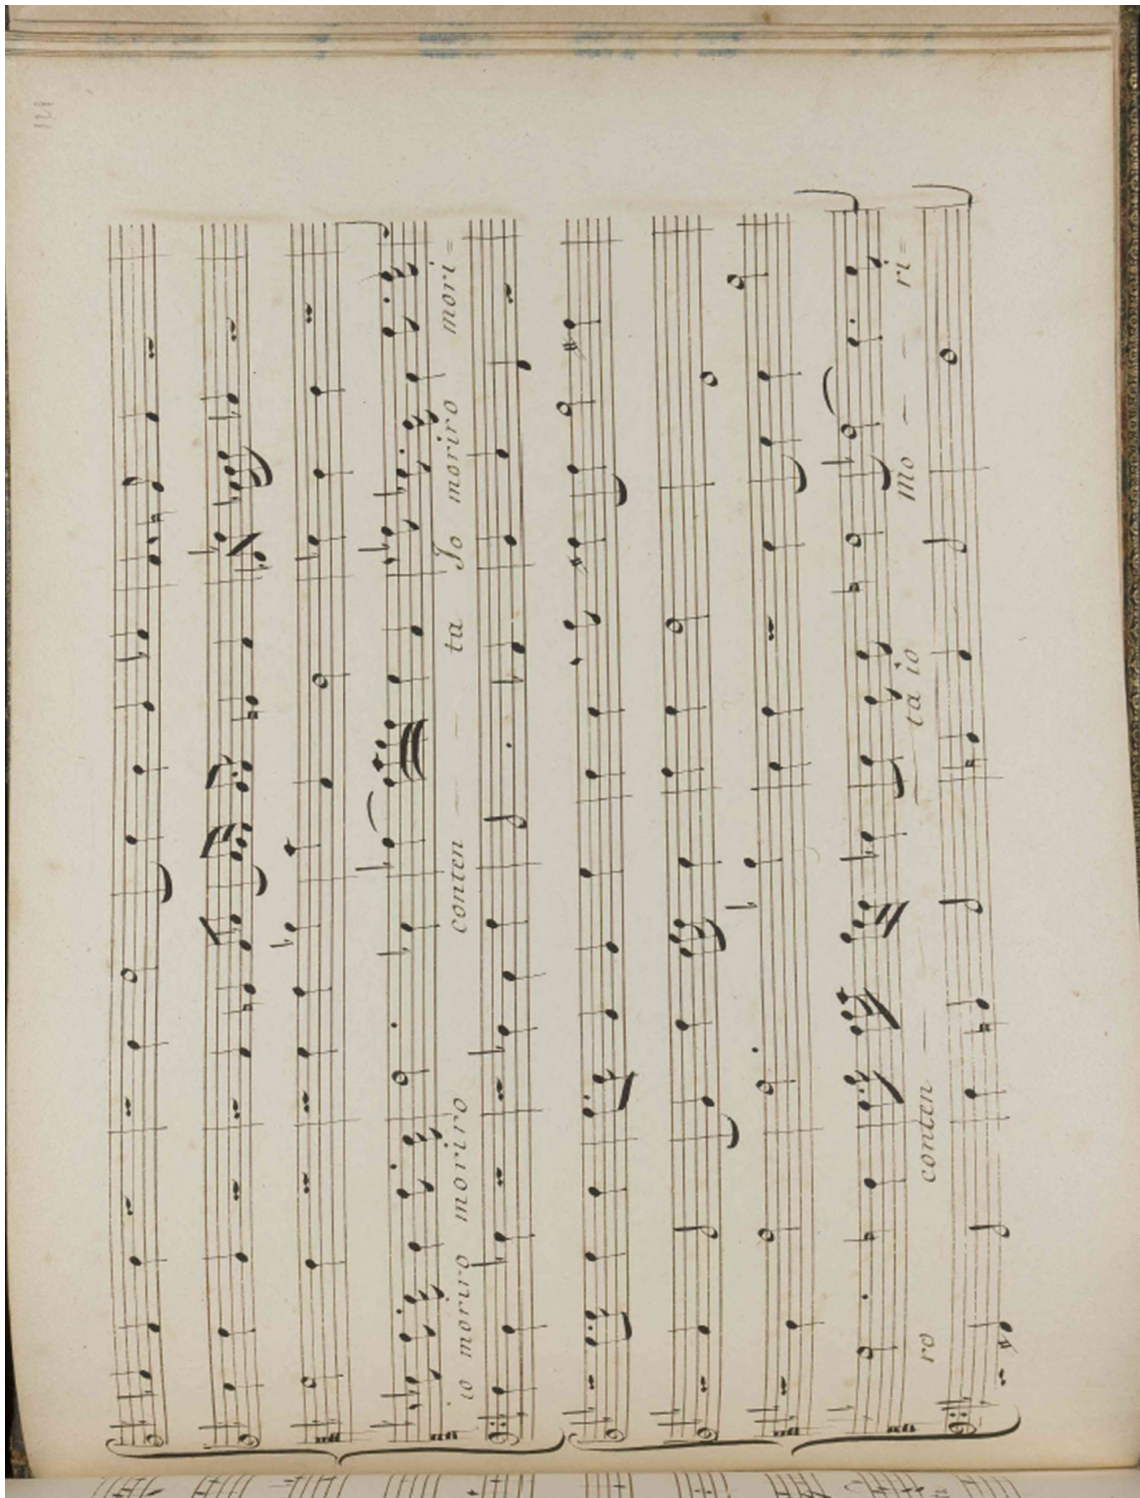 121
io moriro moriro conten — — ta Jo moriro mori=
ro conten — ta io mo — — — ri=